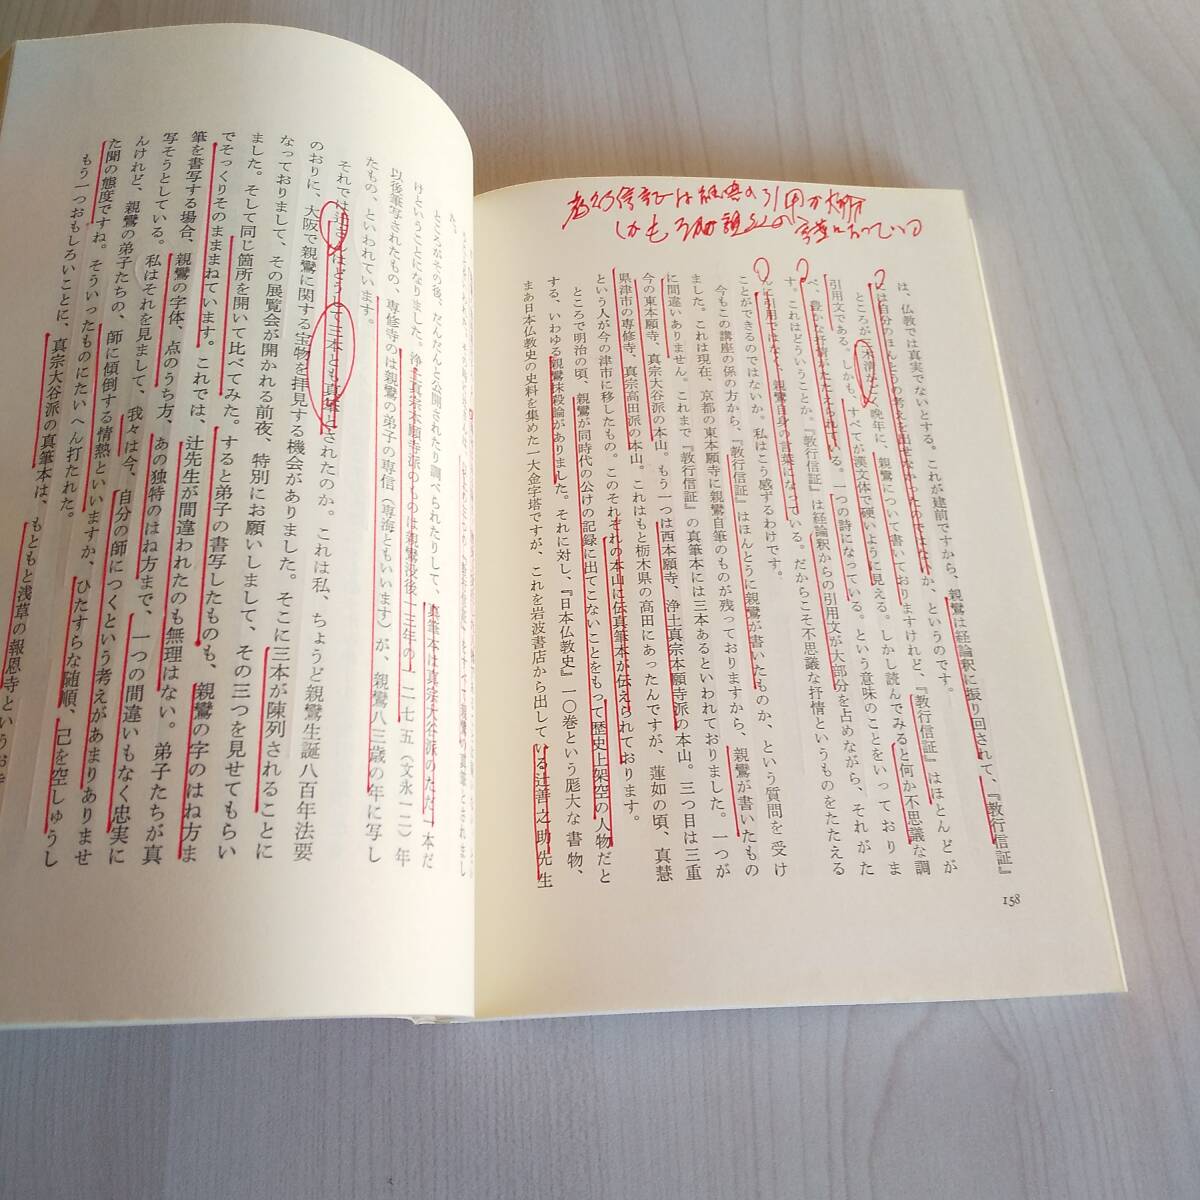 は、仏教では真実でないとする。これが建前ですから、親鸞は経論釈に振り回されて、『教行信証』
では自分のほんとうの考えを出せなかったのではないか、というのです。
ところが三木清など晩年に、親鸞について書いておりますけれど、『教行信証』はほとんどが
引用文である。しかも、すべてが漢文体で硬いように見える。しかし読んでみると何か不思議な調
べ、豊かな抒情がたたえられている。一つの詩になっている。という意味のことをいっておりま
す。これはどういうことか。『教行信証』は経論釈からの引用文が大部分を占めながら、それがた
んに引用ではなく、親鸞自身の言葉になっている。だからこそ不思議な抒情というものをたたえる
ことができるのではないか。私はこう感ずるわけです。
今もこの講座の係の方から、『教行信証』はほんとうに親鸞が書いたものか、という質問を受け
ました。これは現在、京都の東本願寺に親鸞自筆のものが残っておりますから、親鸞が書いたもの
に間違いありません。これまで『教行信証』の真筆本には三本あるといわれておりました。一つが
今の東本願寺、真宗大谷派の本山。もう一つは西本願寺、浄土真宗本願寺派の本山。三つ目は三重
県津市の専修寺、真宗高田派の本山。これはもと栃木県の高田にあったんですが、蓮如の頃、真慧
という人が今の津市に移したもの。このそれぞれの本山に伝真筆本が伝えられております。
ところで明治の頃、親鸞が同時代の公けの記録に出てこないことをもって歴史上架空の人物だと
する、いわゆる親鸞抹殺論がありました。それに対し、『日本仏教史』一〇巻という厖大な書物、
まあ日本仏教史の史料を集めた一大金字塔ですが、これを岩波書店から出している辻善之助先生
158
ところがその後、だんだんと公開されたり調べられたりして、真筆本は真宗大谷派のただ一本だ
けということになりました。浄土真宗本願寺派のものは親鸞没後一三年の一二七五（文永一二）年
以後筆写されたもの、専修寺のは親鸞の弟子の専信（専海ともいいます）が、親鸞八三歳の年に写し
たもの、といわれています。
それでは辻さんはどうして三本とも真筆とされたのか。これは私、ちょうど親鸞生誕八百年法要
のおりに、大阪で親鸞に関する宝物を拝見する機会がありました。そこに三本が陳列されることに
なっておりまして、その展覧会が開かれる前夜、特別にお願いしまして、その三つを見せてもらい
ました。そして同じ箇所を開いて比べてみた。すると弟子の書写したものも、親鸞の字のはね方ま
でそっくりそのままねています。これでは、辻先生が間違われたのも無理はない。弟子たちが真
筆を書写する場合、親鸞の字体、点のうち方、あの独特のはね方まで、一つの間違いもなく忠実に
写そうとしている。私はそれを見まして、我々は今、自分の師につくという考えがあまりありませ
んけれど、親鸞の弟子たちの、師に傾倒する情熱といいますか、ひたすらな随順、己を空しゅうし
た聞の態度ですね。そういったものにたいへん打たれた。
もう一つおもしろいことに、真宗大谷派の真筆本は、もともと浅草の報恩寺という